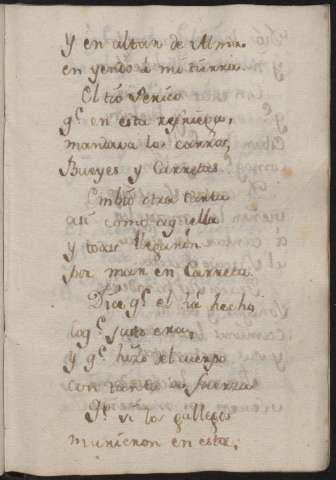 y en altar de Alma.
en yendo á mi tierra
El tio Perico
q.e en esta refriega,
mandava los carros,
Bueyes y Carretas
Embió otra tanta
asi como aq.ella
y todos llegaron
por mar en Carreta.
Dice q.e el ha hecho
loq.e justo era,
y q.e hizo del cuerpo
con tanta
q.e si los gallegos
murieron en esta,